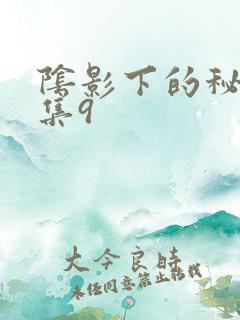 陰影下的秘
集9
大今良時
未经同意禁止转载